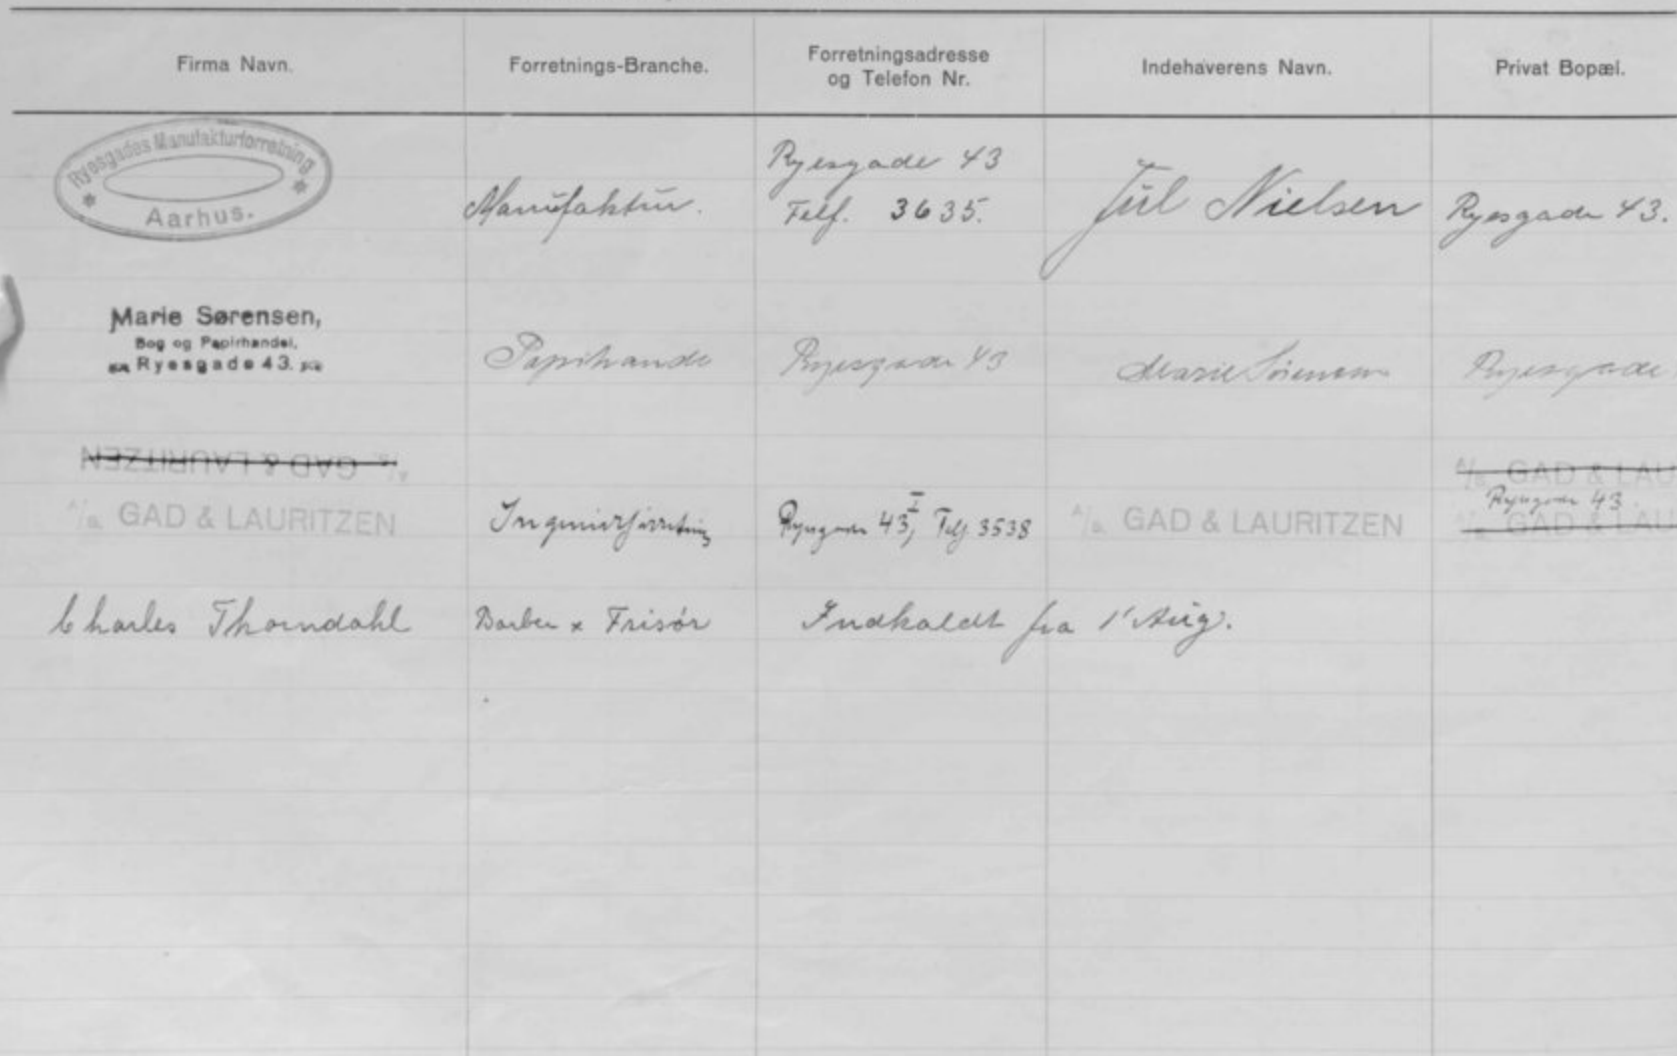 Firma Navn.
Forretnings-Branche.
Forretningsadresse
og Telefon Nr.
Indehaverens Navn.
Privat Bopæl.
Ryesgades Manufakturforretning
Aarhus.
Manufaktur.
Ryesgade 43
Telf. 3635.
Jul Nielsen
Ryesgade 43.
Marie Sørensen,
Bog og Papirhandel,
Ryesgade 43.
Papirhandel
Ryesgade 43
Marie Sørensen
Ryesgade
A/S GAD & LAURITZEN
A/S GAD & LAU
A/S GAD & LAURITZEN
Ingeniørforretning
Ryesgade 43 I, Telf. 3538
A/S GAD & LAURITZEN
Ryesgade 43
A/S GAD & LAU
Charles Thorndahl
Barber × Frisör
Indkaldt fra 1' Aug.